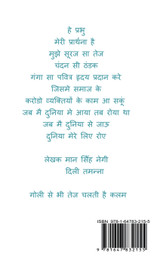 हे प्रभु
मेरी प्रार्थना है
मुझे सूरज सा तेज
चंदन सी ठंडक
गंगा सा पवित्र हृदय प्रदान करे
जिसमे समाज के
करोडो व्यक्तियों के काम आ सकूं
जब मैं दुनिया मे आया तब रोया था
जब मैं दुनिया से जाऊ
दुनिया मेरे लिए रोए
लेखक मान सिंह नेगी
दिली तमन्ना
गोली से भी तेज चलती है कलम
ISBN 978-1-64783-215-5
9 781647 832155